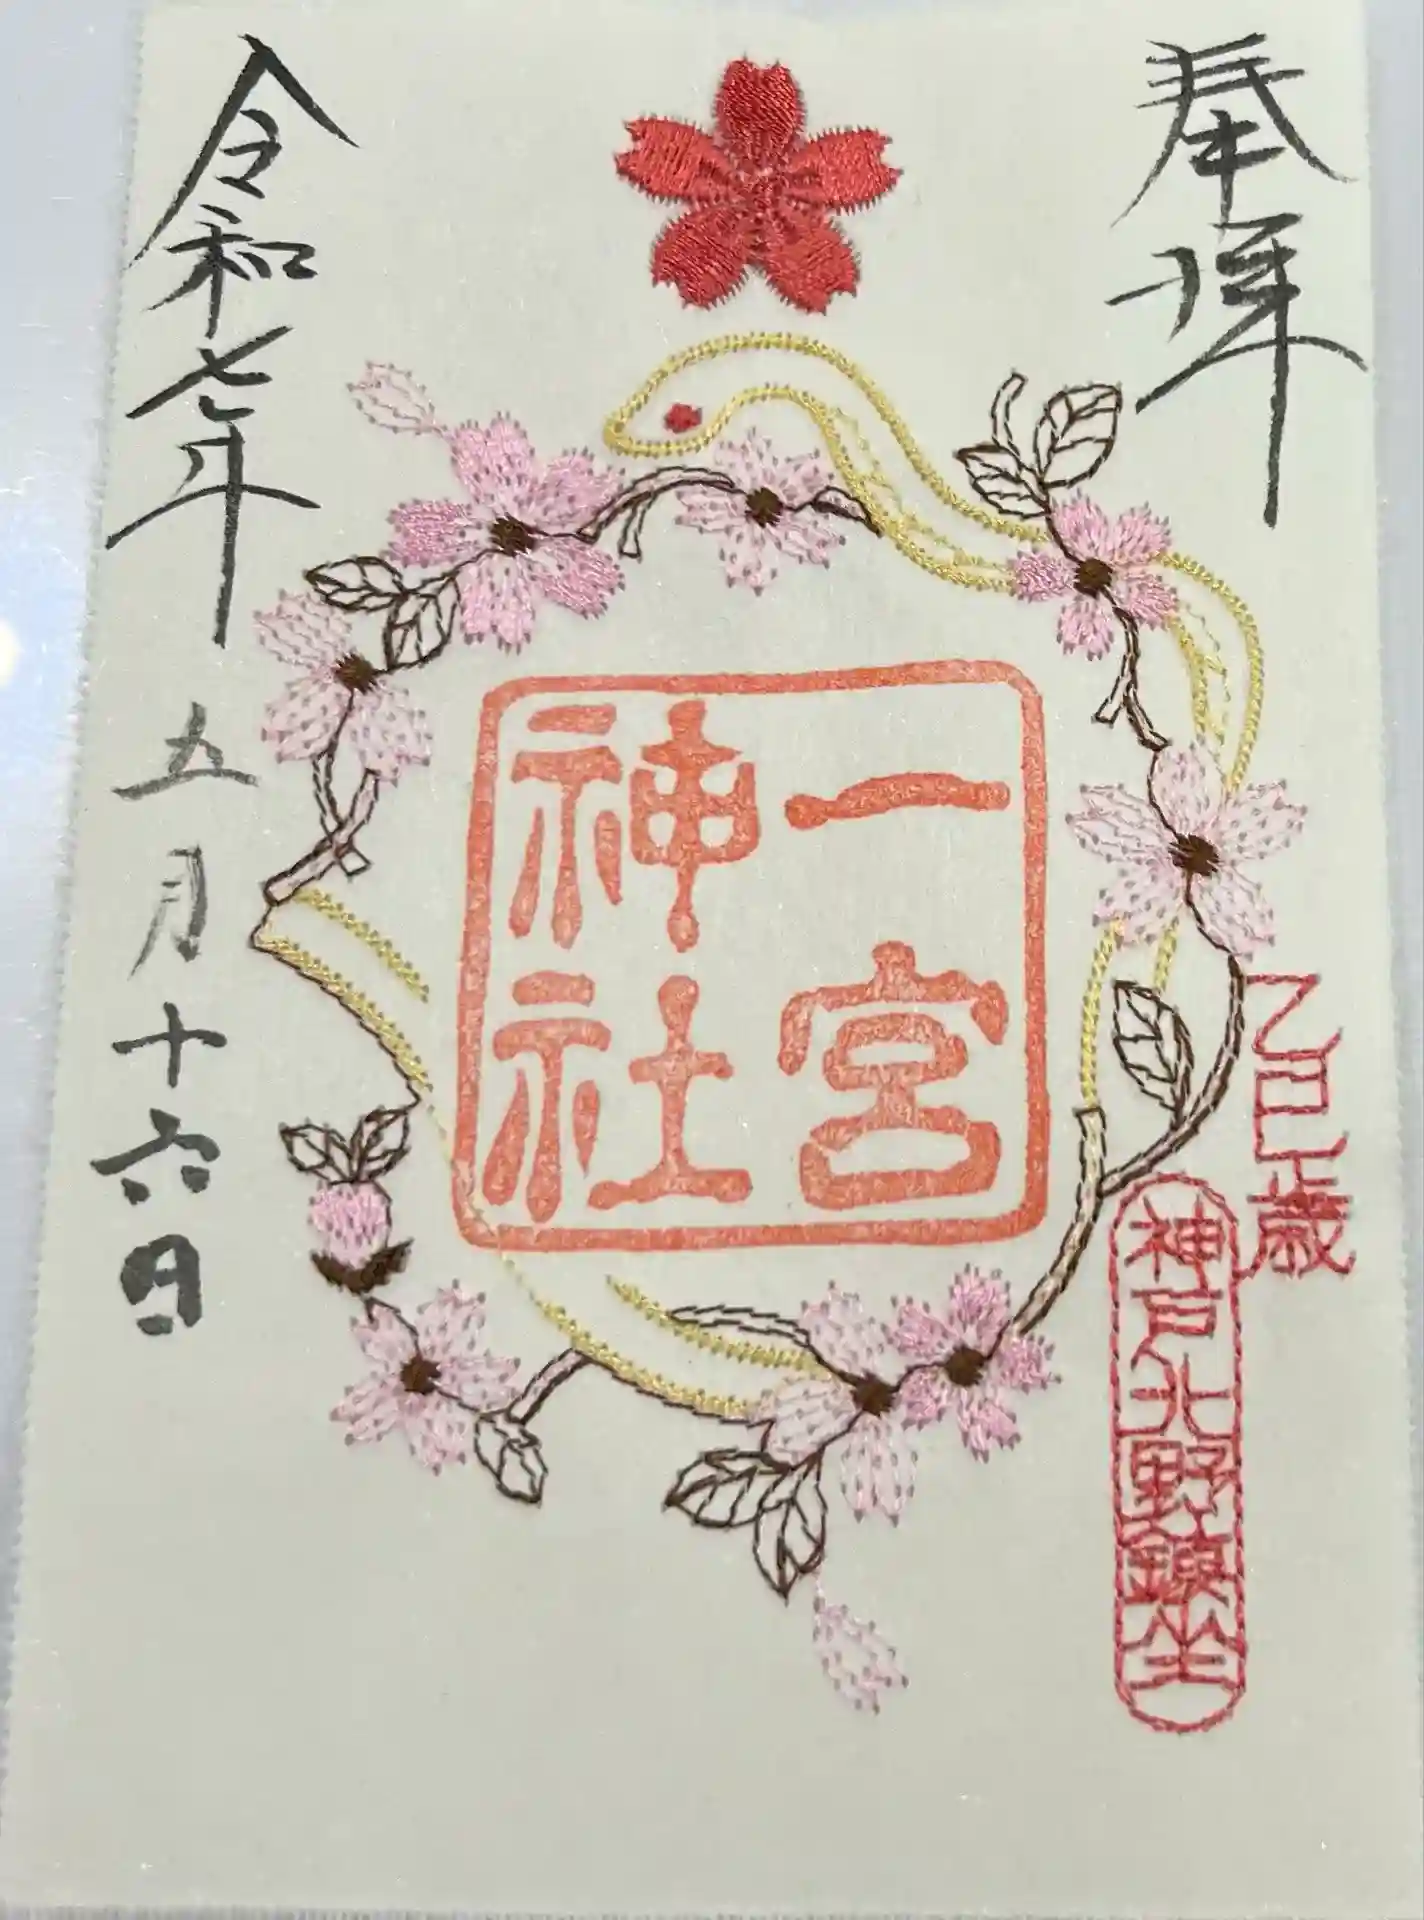 奉拝
乙巳歳
神戸北野鎮座
一宮
神社
令和七年
五月十六日